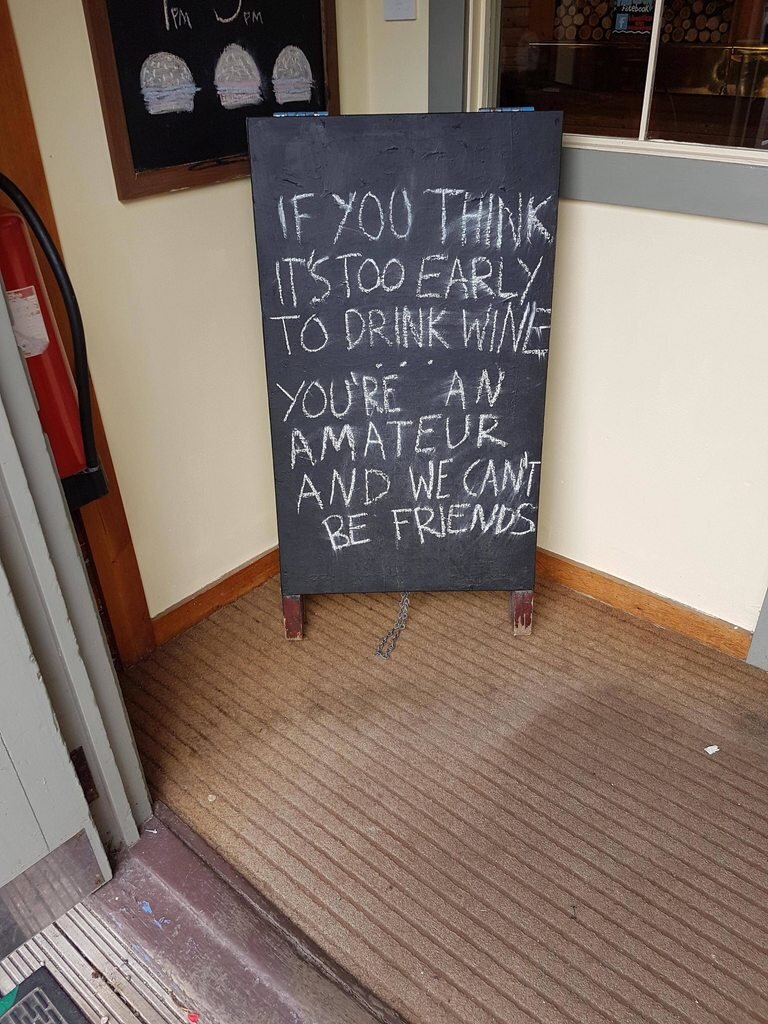 1PM 5PM
IF YOU THINK
IT'S TOO EARLY
TO DRINK WINE
...
YOU'RE AN
AMATEUR
AND WE CAN'T
BE FRIENDS
Facebook